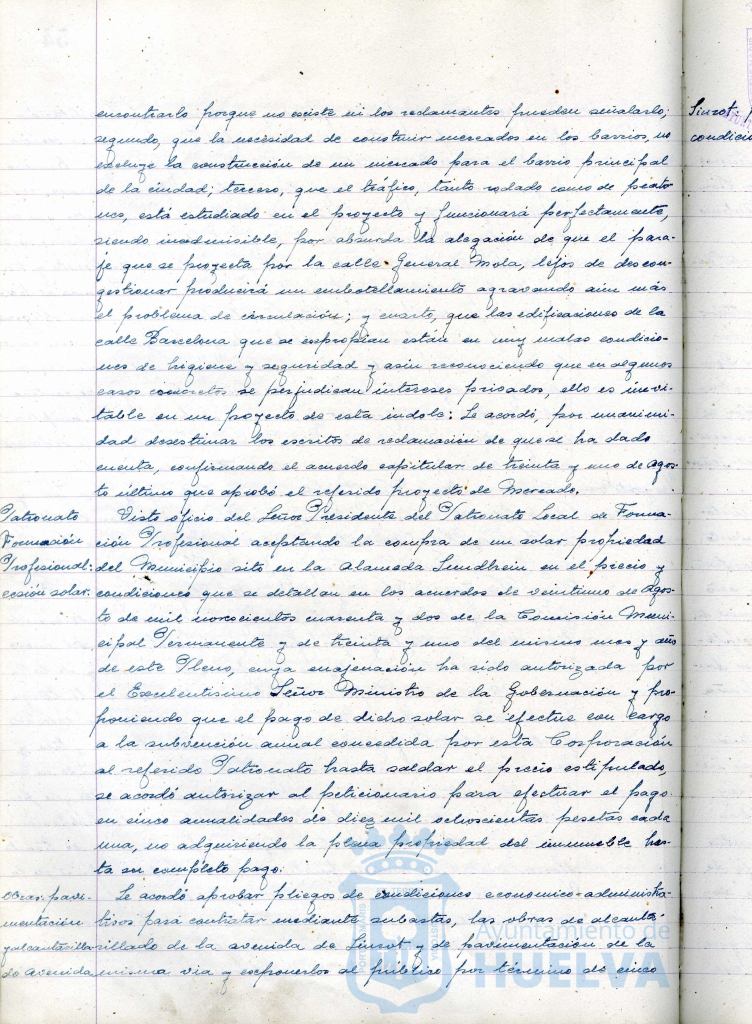 encontrarlo porque no existe ni los reclamantes pueden señalarlo;
segundo, que la necesidad de construir mercados en los barrios, no
excluye la construcción de un mercado para el barrio principal
de la ciudad; tercero, que el tráfico, tanto rodado como de peato-
nes, está estudiado en el proyecto y funcionará perfectamente,
siendo inadmisible, por absurda la alegación de que el para-
je que se proyecta por la calle General Mola, lejos de descon-
gestionar producirá un embotellamiento agravando aún más
el problema de circulación; y cuarto, que las edificaciones de la
calle Barcelona que se expropian están en muy malas condicio-
nes de higiene y seguridad y aún reconociendo que en algunos
casos concretos se perjudican intereses privados, ello es inevi-
table en un proyecto de esta indole: Se acordó, por unanimi-
dad desestimar los escritos de reclamación de que se ha dado
cuenta, confirmando el acuerdo capitular de treinta y uno de Agos-
to último que aprobó el referido proyecto de Mercado.
Patronato
Formación
Profesional:
cesión solar.
Visto oficio del Señor Presidente del Patronato Local de Forma-
ción Profesional aceptando la compra de un solar propiedad
del Municipio sito en la Alameda Sundhein en el precio y
condiciones que se detallan en los acuerdos de veintiuno de Agos-
to de mil novecientos cuarenta y dos de la Comisión Muni-
cipal Permanente y de treinta y uno del mismo mes y año
de este Pleno, cuya enajenación ha sido autorizada por
el Excelentisimo Señor Ministro de la Gobernación y pro-
poniendo que el pago de dicho solar se efectue con cargo
a la subvención anual concedida por esta Corporación
al referido Patronato hasta saldar el precio estipulado,
se acordó autorizar al peticionario para efectuar el pago
en cinco anualidades de diez mil ochocientas pesetas cada
una, no adquiriendo la plena propiedad del inmueble has-
ta su completo pago.
Obras: pavi-
mentación
y alcantarilla-
do avenida
Se acordó aprobar pliegos de condiciones economico-administra-
tivos para contratar mediante subastas, las obras de alcanta-
rillado de la avenida de Siurot y de pavimentación de la
misma via y exponerlos al público por término de cinco
Siurot:
condicio
Ayuntamiento de
HUELVA